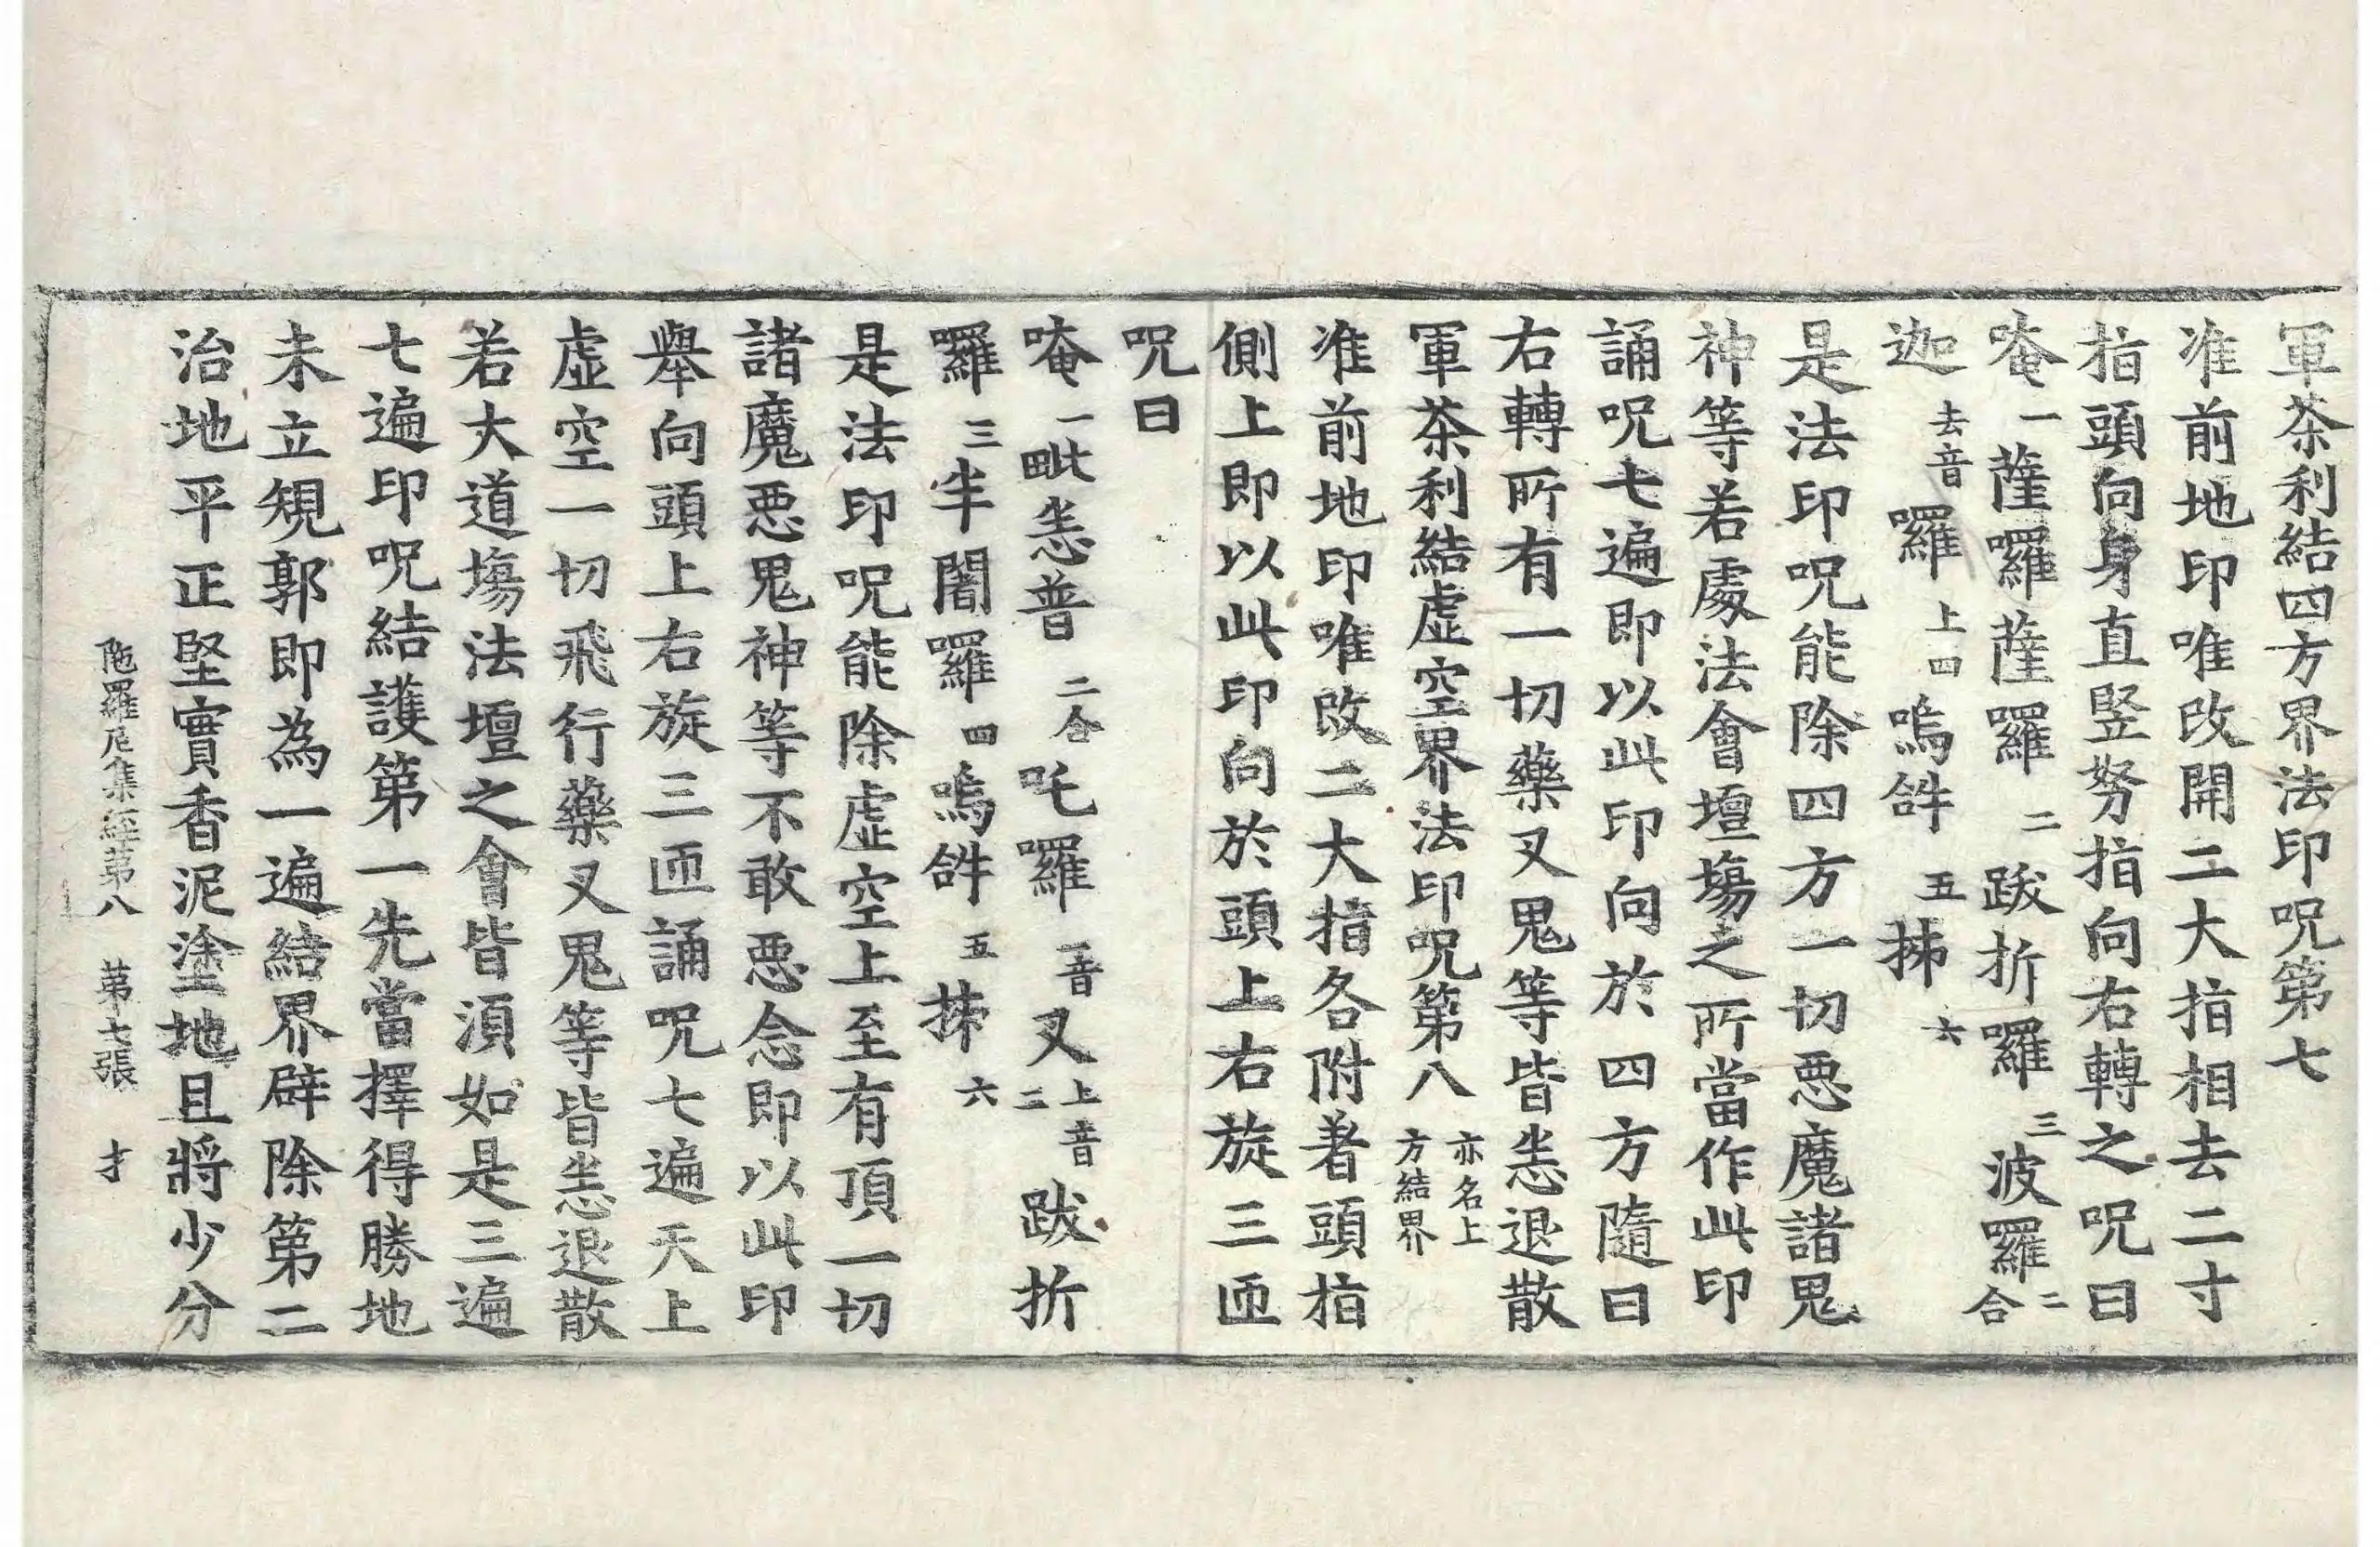 軍茶利結四方界法印呪第七
准前地印唯改開二大指相去二寸
指頭向身直竪努指向右轉之呪曰
唵一薩囉薩囉二跋折囉三波羅二合
迦去音囉上四嗚𤙖五抹六
是法印呪能除四方一切悪魔諸鬼
神等若處法會壇場之所當作此印
誦呪七遍即以此印向於四方隨日
右轉所有一切藥叉鬼等皆恙退散
軍茶利結虛空界法印呪第八亦名上方結界
准前地印唯改二大指各附著頭指
側上即以此印向於頭上右旋三匝
呪曰
唵一毗恙普二合吒囉一音叉上音二跋折
囉三半闇囉四嗚𤙖五抹六
是法印呪能除虛空上至有頂一切
諸魔悪鬼神等不敢悪念即以此印
舉向頭上右旋三匝誦呪七遍天上
虛空一切飛行藥叉鬼等皆恙退散
若大道場法壇之會皆須如是三遍
七遍印呪結護第一先當擇得勝地
未立規郭即為一遍結界辟除第二
治地平正堅實香泥塗地且將少分
陁羅尼集經第八 第七張 才